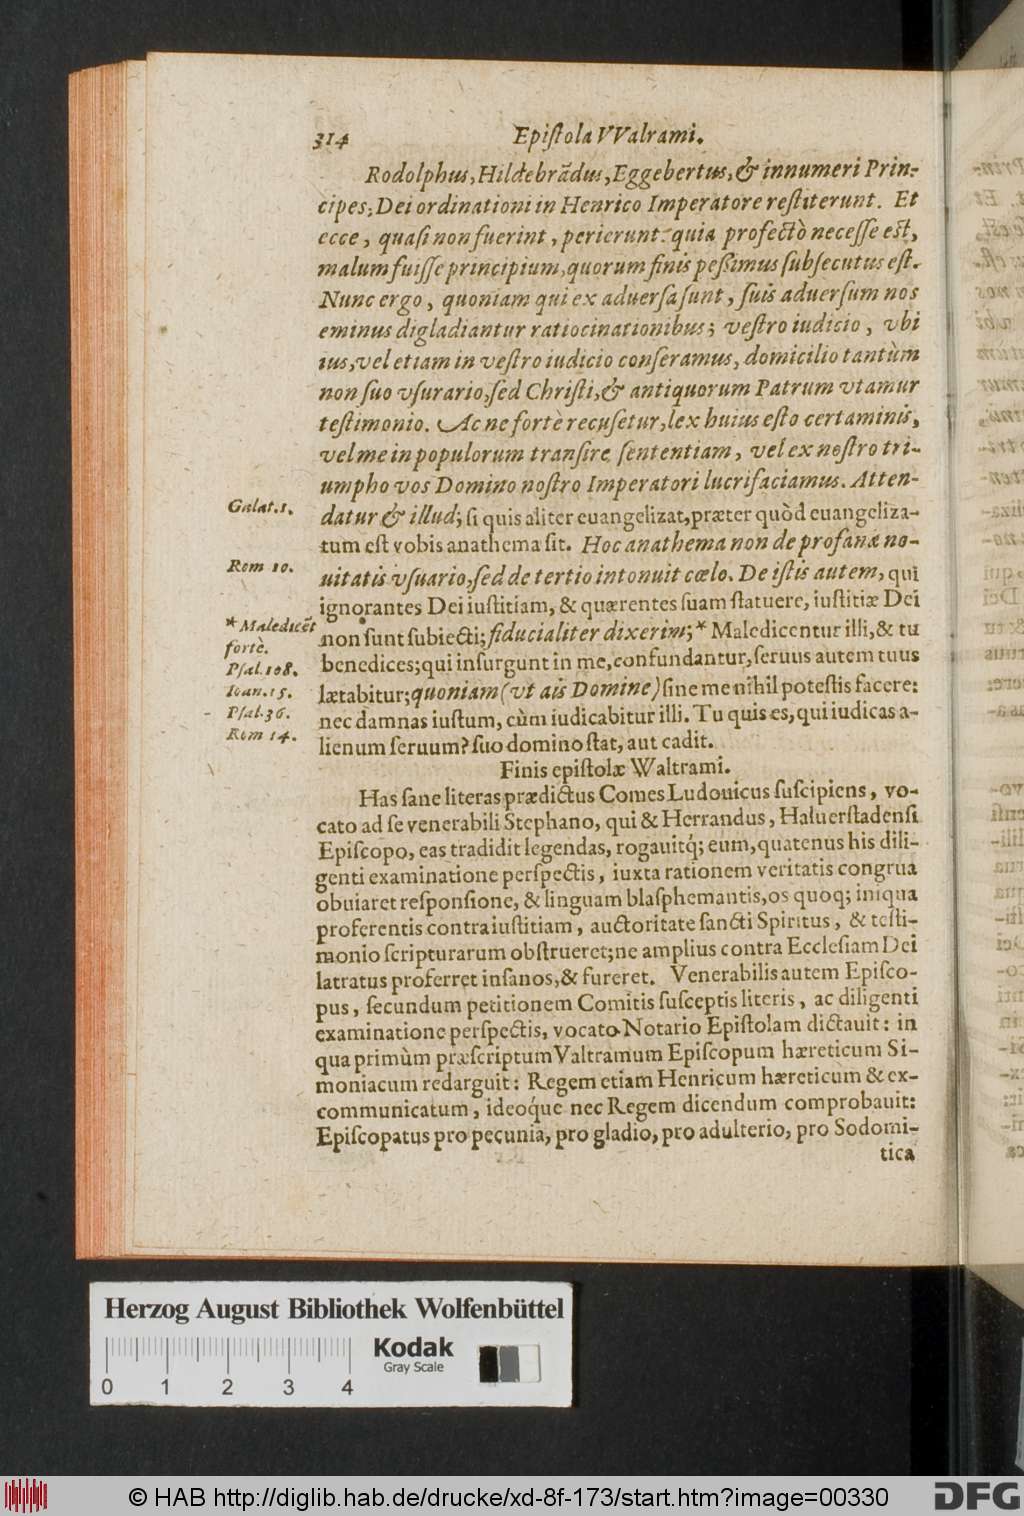 314 Epiſtola VValrami.
Rodolphus, Hildebrãdus, Eggebertus, & innumeri Prin-
cipes; Dei ordinationi in Henrico Imperatore reſtiterunt. Et
ecce, quaſi non fuerint, perierunt: quia profectò neceſſe eſt,
malum fuiſſe principium, quorum finis peſsimus ſubſecutus eſt.
Nunc ergo, quoniam qui ex aduerſa ſunt, ſuis aduerſum nos
eminus digladiantur ratiocinationibus; veſtro iudicio, vbi
ius, vel etiam in veſtro iudicio conſeramus, domicilio tantùm
non ſuo vſurario, ſed Chriſti, & antiquorum Patrum vtamur
teſtimonio. Ac ne fortè recuſetur, lex huius eſto certaminis,
vel me in populorum tranſire ſententiam, vel ex noſtro tri-
umpho vos Domino noſtro Imperatori lucrifaciamus. Atten-
Galat. 1.
datur & illud; ſi quis aliter euangelizat, præter quòd euangeliza-
tum eſt vobis anathema ſit. Hoc anathema non de profanæ no-
Rom 10.
uitatis vſuario, ſed de tertio intonuit cœlo. De iſtis autem, qui
ignorantes Dei iuſtitiam, & quærentes ſuam ſtatuere, iuſtitiæ Dei
* Maledicẽt
non ſunt ſubiecti; fiducialiter dixerim; * Maledicentur illi, & tu
fortè.
Pſal. 108.
benedices; qui inſurgunt in me, confundantur, ſeruus autem tuus
Ioan. 15.
lætabitur; quoniam (vt ais Domine) ſine me nihil poteſtis facere:
Pſal. 36.
nec damnas iuſtum, cùm iudicabitur illi. Tu quis es, qui iudicas a-
Rom 14.
lienum ſeruum? ſuo domino ſtat, aut cadit.
Finis epiſtolæ Waltrami.
Has ſane literas prædictus Comes Ludouicus ſuſcipiens, vo-
cato ad ſe venerabili Stephano, qui & Herrandus, Haluerſtadenſi
Epiſcopo, eas tradidit legendas, rogauitq́; eum, quatenus his dili-
genti examinatione perſpectis, iuxta rationem veritatis congrua
obuiaret reſponſione, & linguam blaſphemantis, os quoq; iniqua
proferentis contra iuſtitiam, auctoritate ſancti Spiritus, & teſti-
monio ſcripturarum obſtrueret; ne amplius contra Eccleſiam Dei
latratus proferret inſanos, & fureret. Venerabilis autem Epiſco-
pus, ſecundum petitionem Comitis ſuſceptis literis, ac diligenti
examinatione perſpectis, vocato Notario Epiſtolam dictauit: in
qua primùm præſcriptum Valtramum Epiſcopum hæreticum Si-
moniacum redarguit: Regem etiam Henricum hæreticum & ex-
communicatum, ideoq́ue nec Regem dicendum comprobauit:
Epiſcopatus pro pecunia, pro gladio, pro adulterio, pro Sodomi-
tica
Herzog August Bibliothek Wolfenbüttel
Kodak
Gray Scale
0 1 2 3 4
© HAB http://diglib.hab.de/drucke/xd-8f-173/start.htm?image=00330
DFG